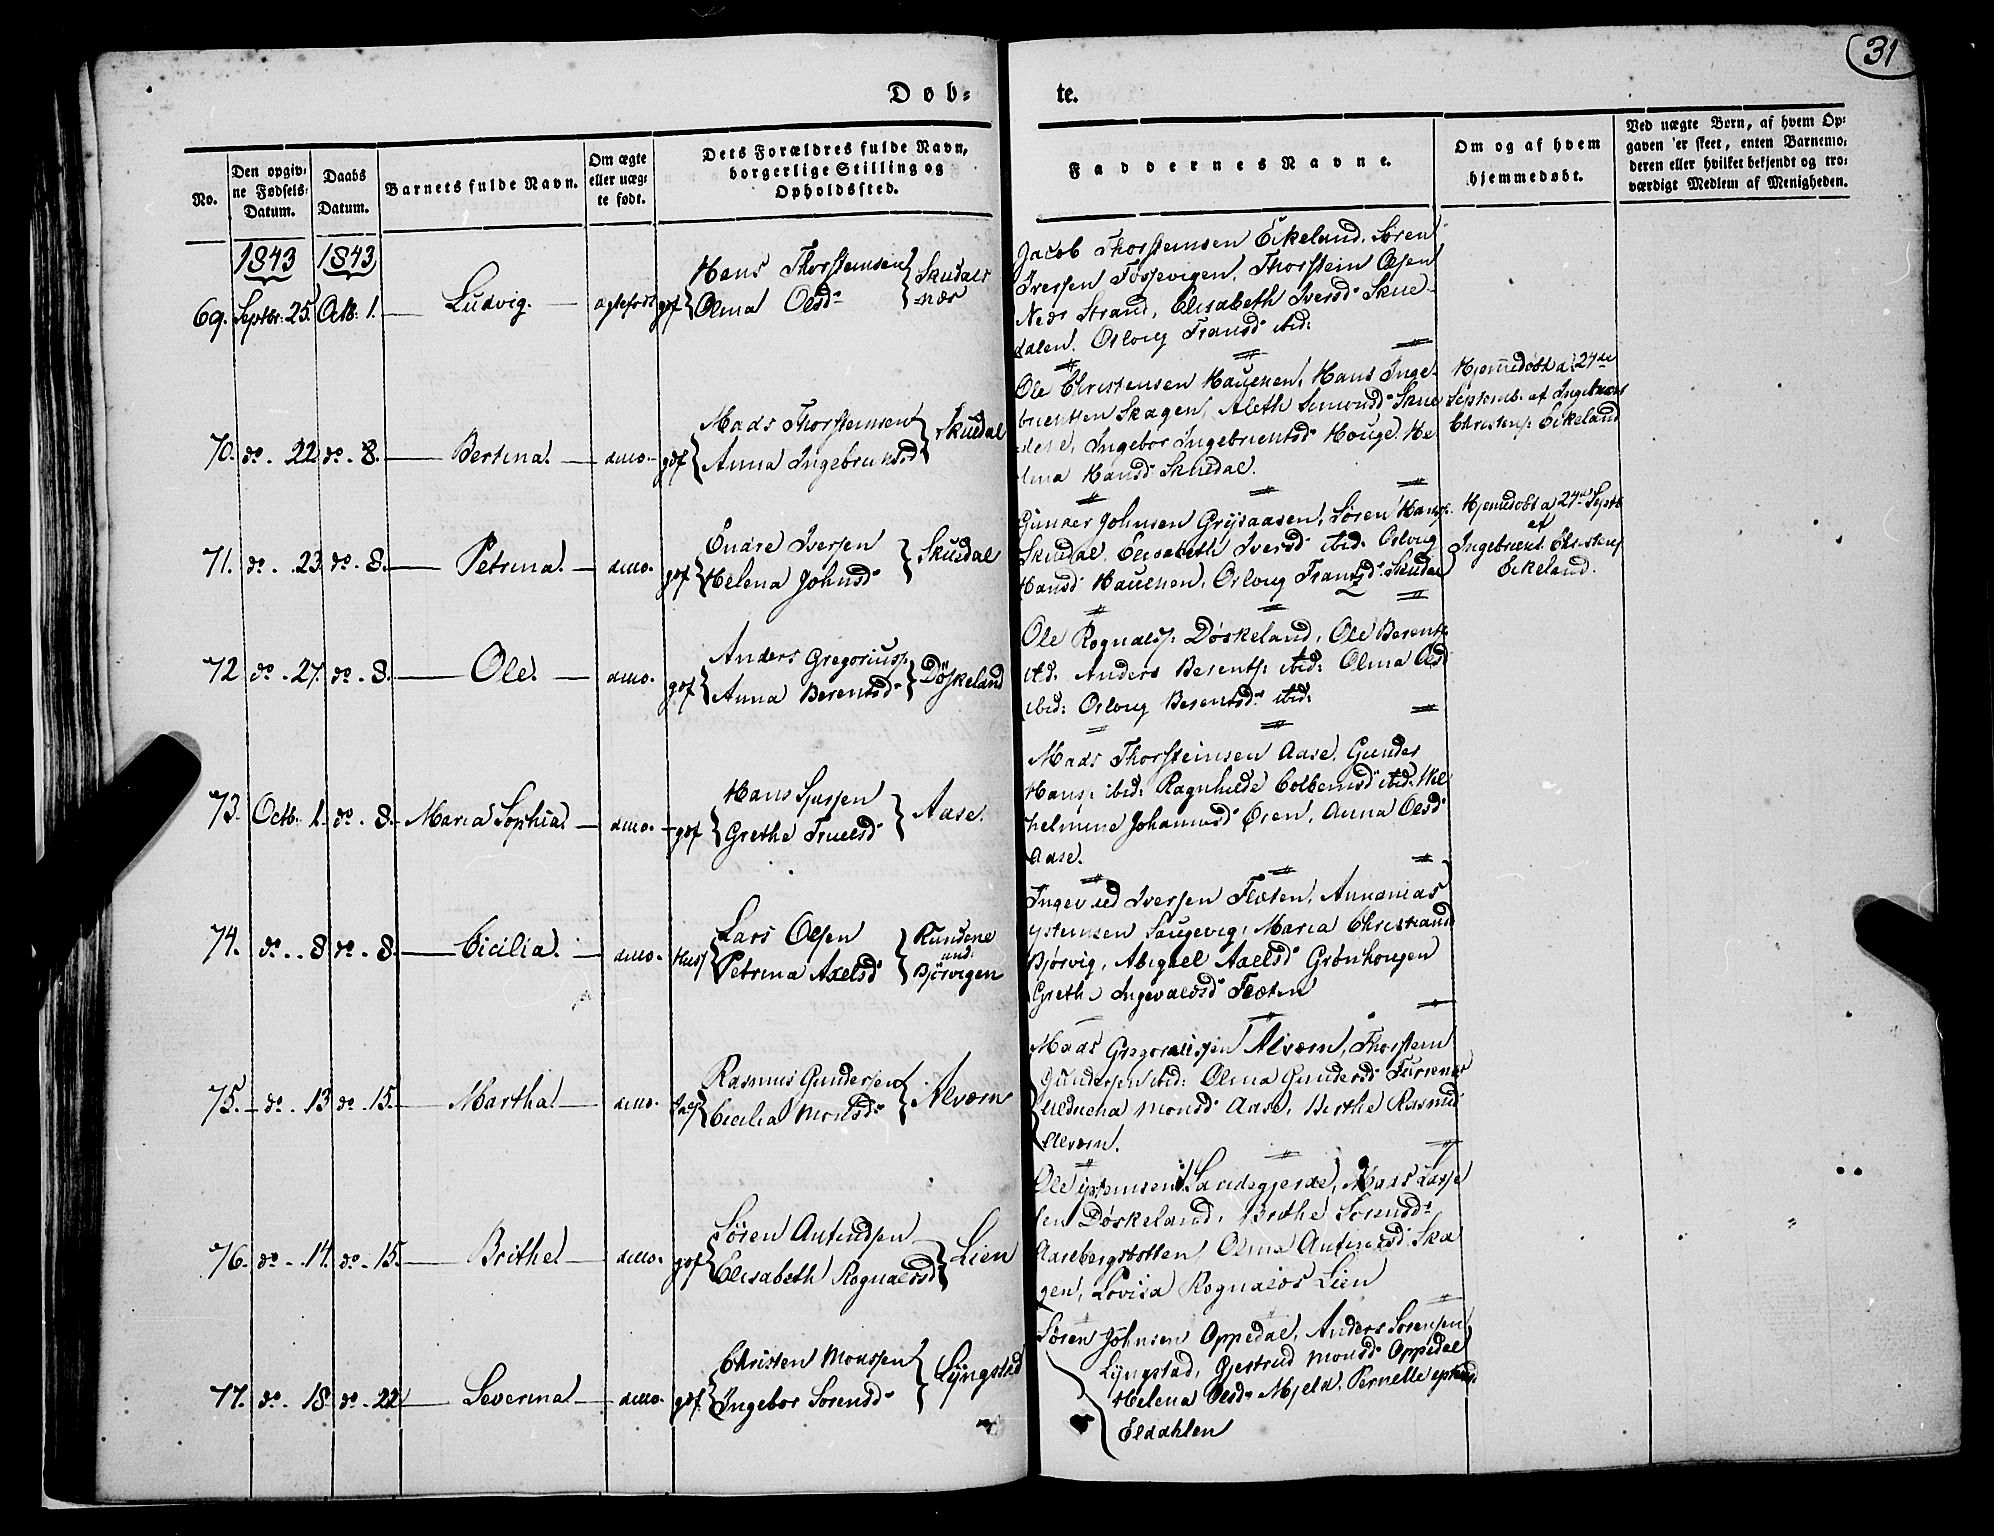 31
Døb-
te.
No.
Den opgiv-
ne Fødsels-
Datum.
Daabs
Datum.
Barnets fulde Navn.
Om ægte
eller uæg-
te født.
Dets Forældres fulde Navn,
borgerlige Stilling og
Opholdssted.
Faddernes Navne.
Om og af hvem
hjemmedøbt.
Ved uægte Børn, af hvem Op-
gaven er skeet, enten Barnemo-
deren eller hvilket bekjendt og tro-
værdigt Medlem af Menigheden.
1843 1843
69. Septbr. 25. Octb. 1. Ludvig. ægtefødt gdf
Hans Thorsteinsen
Olina Olsd.
Skudals
-nær
Jacob Thorsteinsen Eikeland, Søren
Iversen Tossevigen, Thorstein Olsen
Nedr Strand, Elisabeth Iversd. Skue-
dalen. Orloug Fransd. ibid:
70. do. 22 do. 8. Bertina. ditto. gdf
Mads Thorsteinsen
Anna Ingebrietsd
Skuedal
Ole Christensen Hauenen, Hans Inge-
brietsen Skagen, Aleth Simonsd. Skue
dal, Ingebor Ingebrietsd. Houge. He
lena Hansd. Skuedal.
Hjemmedøbt d. 24de
Septemb. af Ingebriet
Christensen Eikeland
71. do. 23 do. 8. Petrina. ditto. gdf
Endre Iversen
Helena Johnsd.
Skuedal
Gunder Johnsen Grytaasen, Søren Hans:
Skuedal. Elisabeth Iversd. ibid. Orloug
Hansd. Hauenen, Orloug Fransd. Skuedal
Hjemmedøbt d 24de Septb
af
Ingebriet Christens
Eikeland.
72. do. 27. do. 8. Ole. ditto. gdf
Anders Gregoriuss.
Anna Berentsd.
Døskeland
Ole Rognalds. Døskeland, Ole Berents.
ibd. Anders Berents. ibid: Olina Olsd
ibid: Orloug Berentsd. ibid:
73. Octb. 1. do. 8. Maria Sophia. ditto. gdf
Hans Sjursen
Grethe Truelsd.
Aase.
Mads Thorsteinsen Aase. Gunder
Hans: ibid: Ragnhilde Colbeinsd ibid: Wil
helmine Johannesd. Øren, Anna Olsd.
Aase.
74. do. 8 do. 8. Cicilia. ditto. Huusf
Lars Olsen
Petrina Axelsd.
Rundene
und.
Bjørvigen
Ingevald Iversen Floten, Annanias
Ystensen Saugevig, Maria Christiansd
Bjørvig, Abigael Axelsd. Grønhougen
Grethe Ingevaldsd. Floten
75. do. 13 do. 15. Martha. ditto.
Rasmus Gundersen
Cicilia Monsd.
Alværn
Mads Gregoriussen Alværn, Thorstein
Gundersen ibid: Olina Gundersd.
Monsd. Aase, Berthe Rasmusd
Alværn.
76. do. 14. do. 15. Brithe. ditto. gdf
Søren Antendsen
Elisabeth Rognaldsd
Lien
Ole Ystensen Sandegjerde, Mads Lasse
sen Døskeland, Brithe Sørensd.
Aasebergstotten Olina Antensd. Ska
gen, Lovisa Rognalds Lien
77. do. 18 do. 22 Severina. ditto. gdf.
Christen Monssen
Ingebor Sørensd.
Lÿngstad
Søren Johnsen Oppedal, Anders Sørensen
Lÿngstad, Gjertrud Monsd. Oppedal
Helena Olsd. Mjeld. Pernelle
Eldahlen